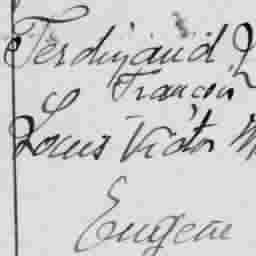 Ferdinand
François
Louis Victor M
Eugène